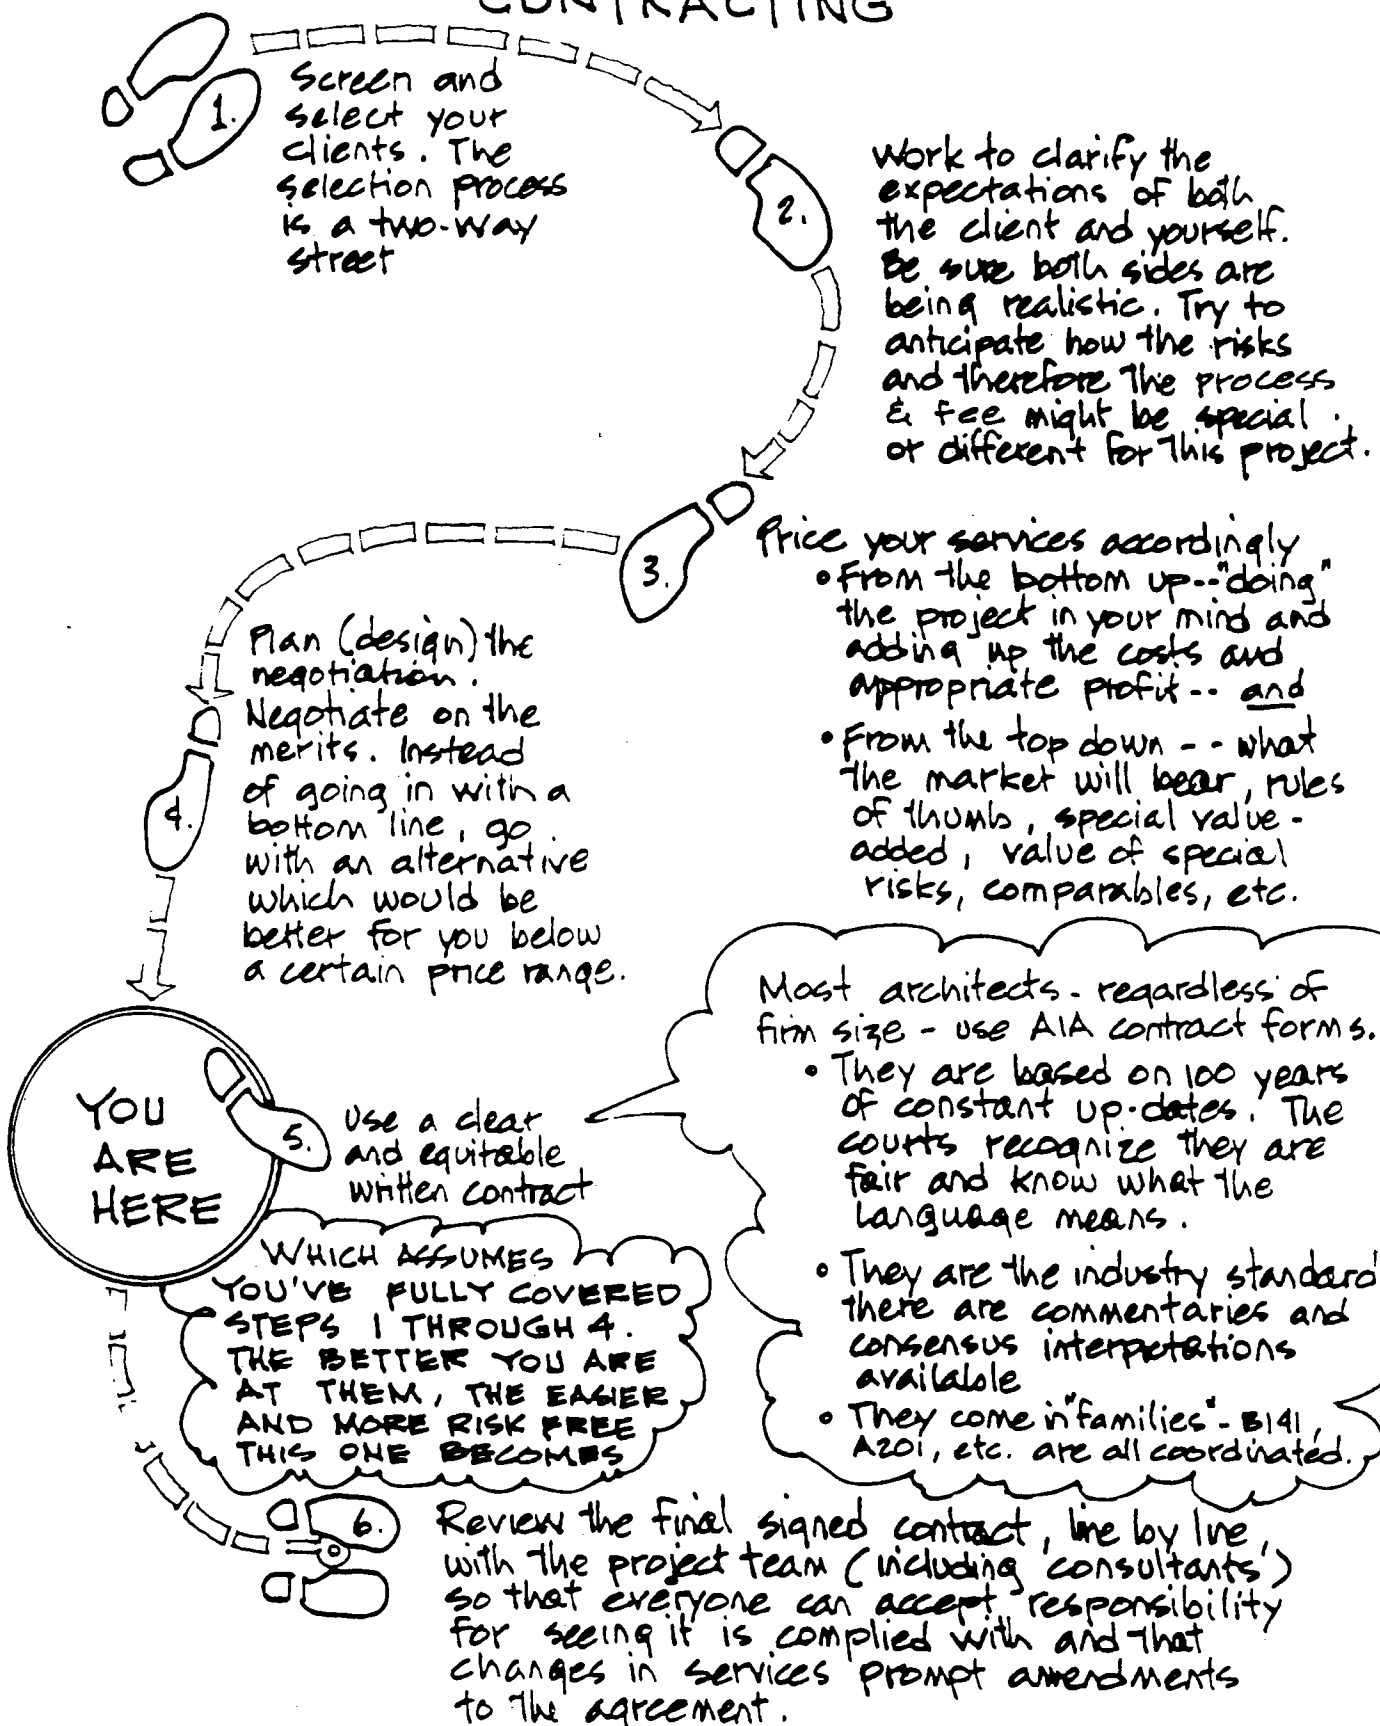 CONTRACTING
1.
Screen and
select your
clients. The
selection process
is a two-way
street
2.
Work to clarify the
expectations of both
the client and yourself.
Be sure both sides are
being realistic. Try to
anticipate how the risks
and therefore the process
& fee might be special
or different for this project.
3.
Price your services accordingly
• From the bottom up--"doing"
the project in your mind and
adding up the costs and
appropriate profit-- and
• From the top down -- what
the market will bear, rules
of thumb, special value-
added, value of special
risks, comparables, etc.
4.
Plan (design) the
negotiation.
Negotiate on the
merits. Instead
of going in with a
bottom line, go
with an alternative
which would be
better for you below
a certain price range.
YOU
ARE
HERE
5.
Use a clear
and equitable
written contract
Most architects - regardless of
firm size - use AIA contract forms.
• They are based on 100 years
of constant up-dates. The
courts recognize they are
fair and know what the
language means.
• They are the industry standard
there are commentaries and
consensus interpretations
available
• They come in "families" - B141,
A201, etc. are all coordinated.
WHICH ASSUMES
YOU'VE FULLY COVERED
STEPS 1 THROUGH 4.
THE BETTER YOU ARE
AT THEM, THE EASIER
AND MORE RISK FREE
THIS ONE BECOMES
6.
Review the final signed contract, line by line,
with the project team (including consultants)
so that everyone can accept responsibility
for seeing it is complied with and that
changes in services prompt amendments
to the agreement.